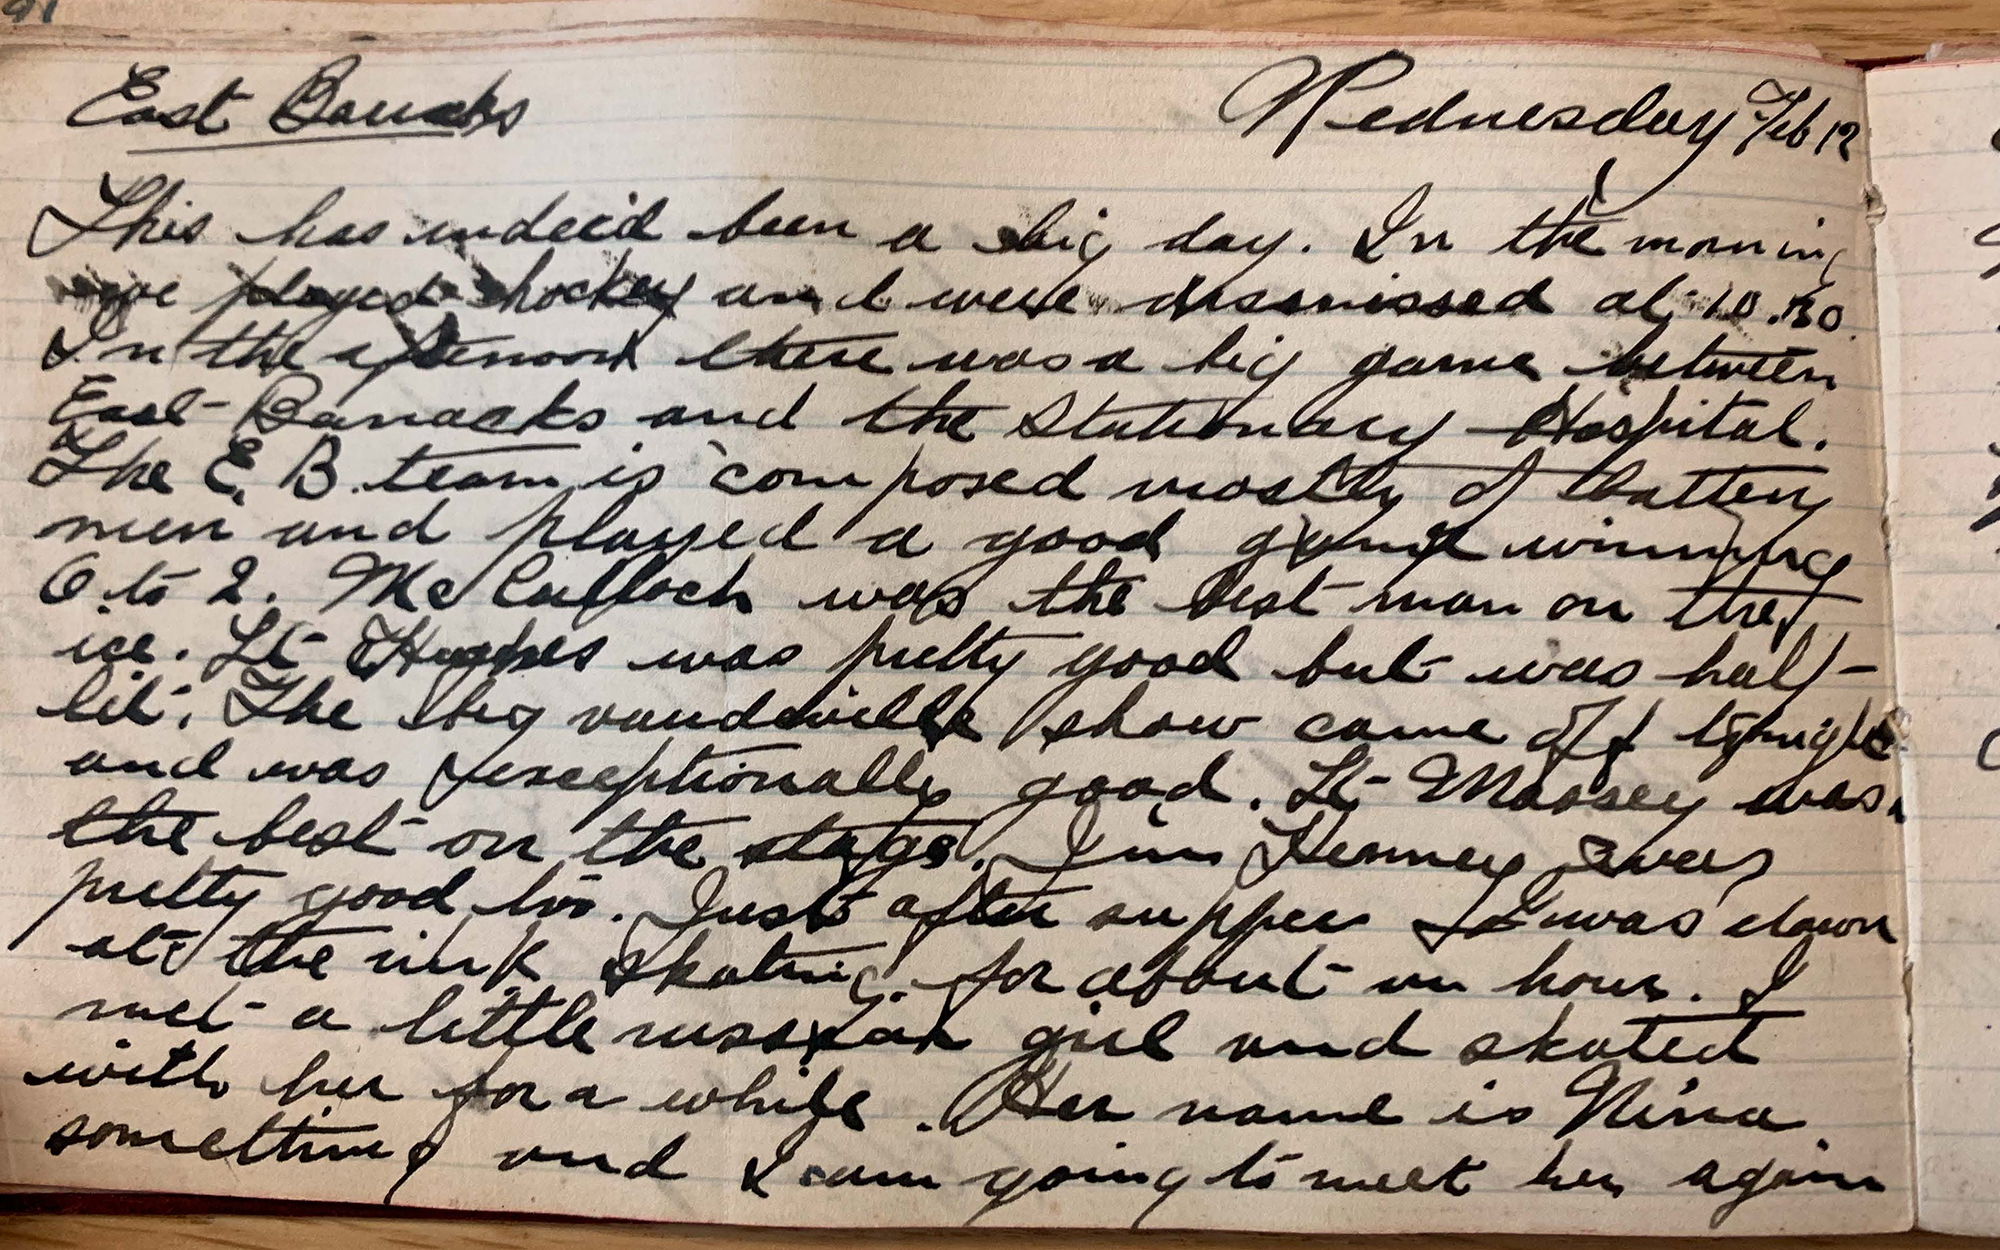 91
East Barracks Wednesday Feb 12
This has indeed been a big day. In the morning
we played hockey and were dismissed at 10.30
In the afternoon there was a big game between
East Barracks and the Stationary Hospital.
The E. B. team is composed mostly of battery
men and played a good game winning
6 to 2. McCulloch was the best man on the
ice. Lt Hughes was pretty good but was half-
lit. The big vaudeville show came off tonight
and was exceptionally good. Lt Massey was
the best on the stage. Jim Henney was
pretty good too. Just after supper I was down
at the rink skating for about an hour. I
met a little russian girl and skated
with her for a while. Her name is Nina
something and I am going to meet her again